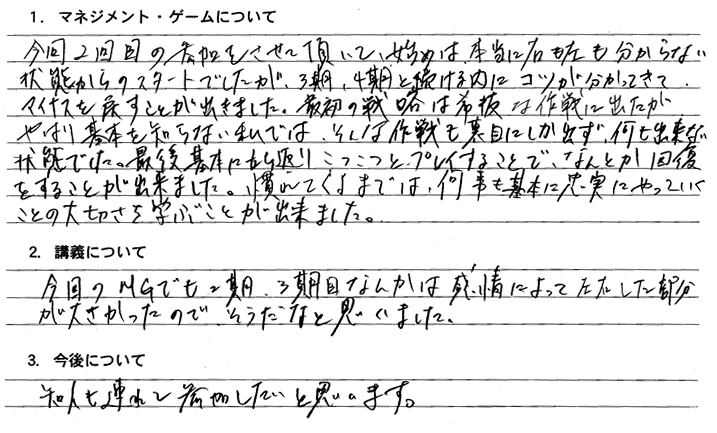 1. マネジメント・ゲームについて
今回2回目の参加をさせて頂いて、始めは本当に右も左も分からない
状態からのスタートでしたが、3期、4期と続ける内にコツが分かってきて、
マイナスを戻すことが出来ました。最初の戦略は奇抜な作戦に出たが
やはり基本を知らない私では、そんな作戦も裏目にしか出ず、何も出来ない
状態でした。最後基本に立ち返りこつこつとプレイすることで、なんとか回復
をすることが出来ました。慣れてくるまでは、何事も基本に忠実にやっていく
ことの大切さを学ぶことが出来ました。
2. 講義について
今回のMGでも2期、3期目なんかは感情によって左右した部分
が大きかったので、そうだなと思いました。
3. 今後について
知人も連れて参加したいと思います。